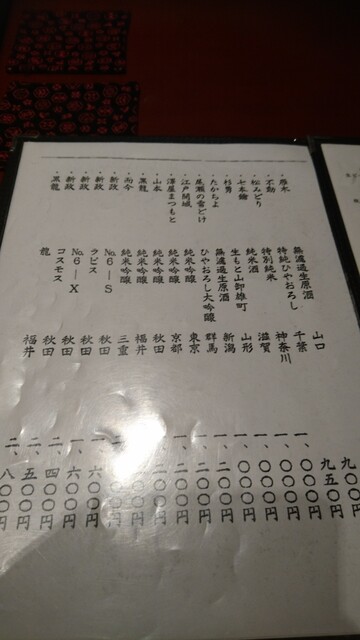 ・雁木 無濾過生原酒 山口 九〇〇円
・不動 特純ひやおろし 千葉 九五〇円
・松みどり 特別純米 神奈川 一、〇〇〇円
・七本鎗 純米酒 滋賀 一、〇〇〇円
・杉勇 生もと山卸雄町 山形 一、〇〇〇円
・たかちよ 無濾過生原酒 新潟 〇〇円
・尾瀬の雪どけ ひやおろし大吟醸 群馬 〇〇円
・江戸開城 純米吟醸 東京 〇〇円
・澤屋まつもと 純米吟醸 京都 〇〇円
・山本 純米吟醸 秋田 〇〇円
・黒龍 純米吟醸 福井 〇〇円
・而今 純米吟醸 三重 〇〇円
・新政 No.6―S 秋田 一、六〇〇円
・新政 ラピス 秋田 一、六〇〇円
・新政 No.6―X 秋田 二、四〇〇円
・新政 コスモス 秋田 二、五〇〇円
・黒龍 龍 福井 二、八〇〇円